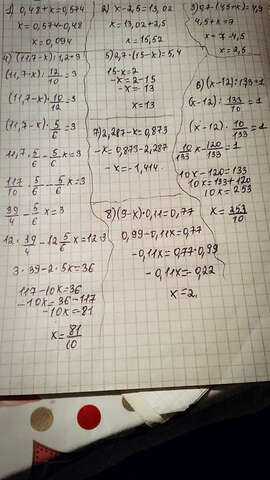 1) 0,48+x=0,574
x=0,574-0,48
x=0,094
2) x-2,5=13,02
x=13,02+2,5
x=15,52
4,5+x=7
x=7-4,5
x=2,5
4) (11,7-x):1,2=3
(11,7-x)·12/10=3
(11,7-x)·10/12=3
(11,7-x)·5/6=3
11,7·5/6-5/6x=3
117/10·5/6-5/6x=3
39/4-5/6x=3
12·39/4-12·5/6x=12·3
3·39-2·5x=36
117-10x=36
-10x=36-117
-10x=81
x=81/10
5) 2,7·(15-x)=5,4
15-x=2
-x=2-15
-x=13
x=13
6) (x-12):13,3=1
(x-12):133/10=1
(x-12)·10/133=1
10/133x-120/133=1
10x-120=133
10x=133+120
10x=253
x=253/10
7) 2,287-x=0,873
-x=0,873-2,287
-x=-1,414
8) (9-x)·0,11=0,77
0,99-0,11x=0,77
-0,11x=0,77-0,99
-0,11x=-0,22
x=2